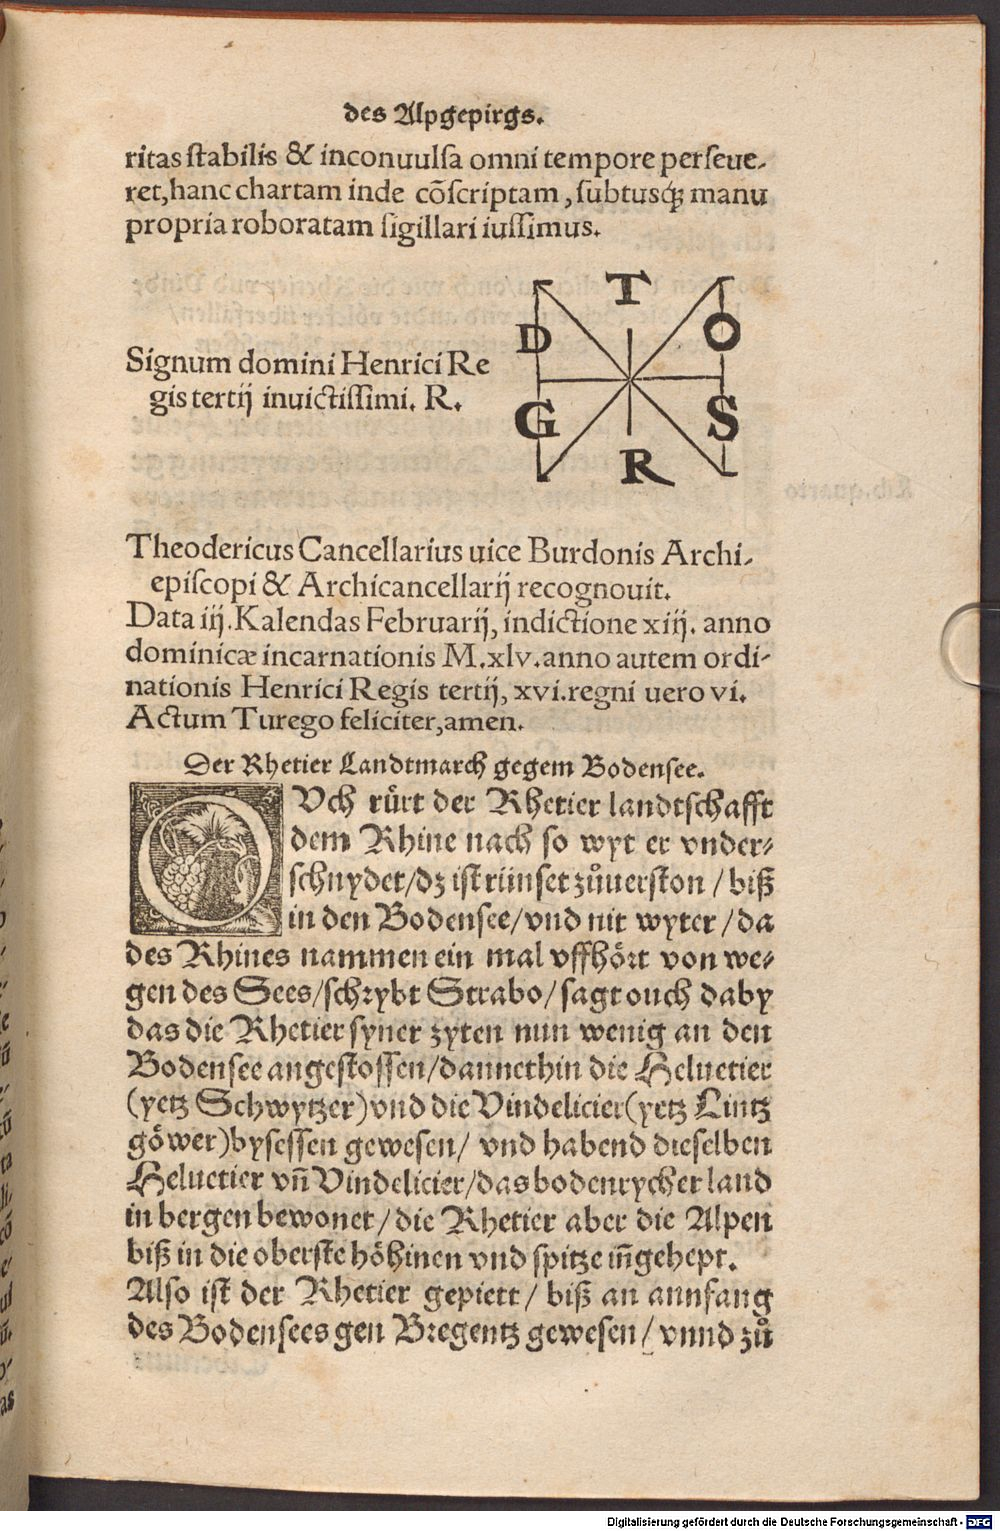 des Alpgepirgs.
ritas stabilis & inconuulsa omni tempore perseue-
ret, hanc chartam inde cõscriptam, subtusq; manu
propria roboratam sigillari iussimus.
T
D O
Signum domini Henrici Re
gis tertij inuictissimi. R.
G S
R
Theodericus Cancellarius uice Burdonis Archi-
episcopi & Archicancellarij recognouit.
Data iij. Kalendas Februarij, indictione xiij. anno
dominicæ incarnationis M.xlv. anno autem ordi-
nationis Henrici Regis tertij, xvi. regni uero vi.
Actum Turego feliciter, amen.
Der Rhetier Landtmarch gegem Bodensee.
OVch růrt der Rhetier landtschafft
dem Rhine nach so wyt er vnder-
schnydet/dz ist rünset zůuerston / biß
in den Bodensee/vnd nit wyter / da
des Rhines nammen ein mal vffhört von we-
gen des Sees/schrybt Strabo/ sagt ouch daby
das die Rhetier syner zyten nun wenig an den
Bodensee angestossen/dannethin die Heluetier
(yetz Schwytzer) vnd die Vindelicier (yetz Lintz
göwer) bysessen gewesen/ vnd habend dieselben
Heluetier vñ Vindelicier/das bodenrycher land
in bergen bewonet/die Rhetier aber die Alpen
biß in die oberste höhinen vnd spitze iñgehept.
Also ist der Rhetier gepiett/ biß an annfang
des Bodensees gen Bregentz gewesen/ vnnd zů
Digitalisierung gefördert durch die Deutsche Forschungsgemeinschaft - DFG